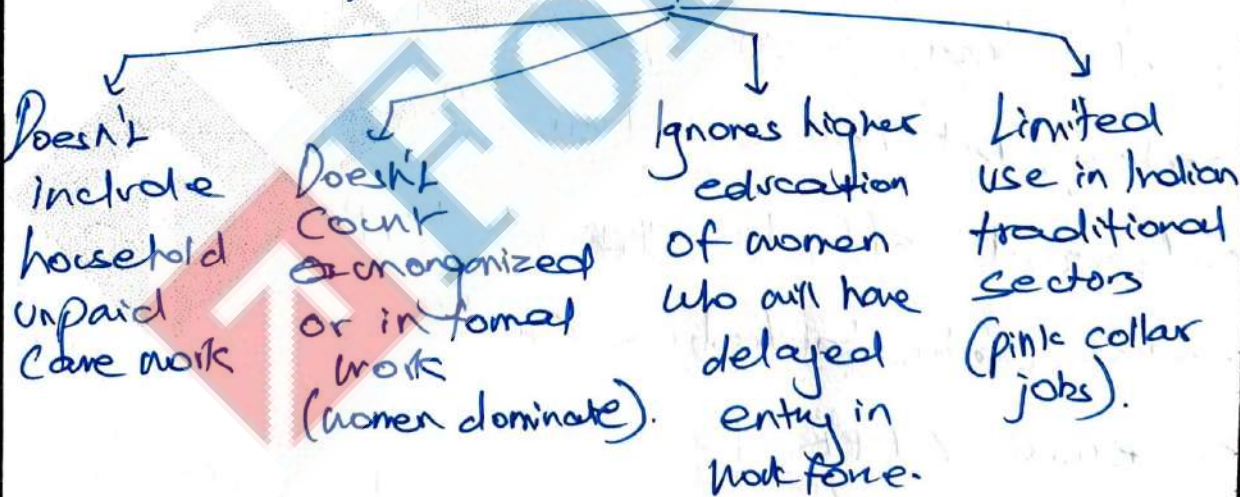 Doesn't
include
household
unpaid
care work
Doesn't
count
unorganized
or informal
work
(women dominate).
Ignores higher
education
of women
who will have
delayed
entry in
workforce.
Limited
use in Indian
traditional
sectors
(pink collar
jobs).